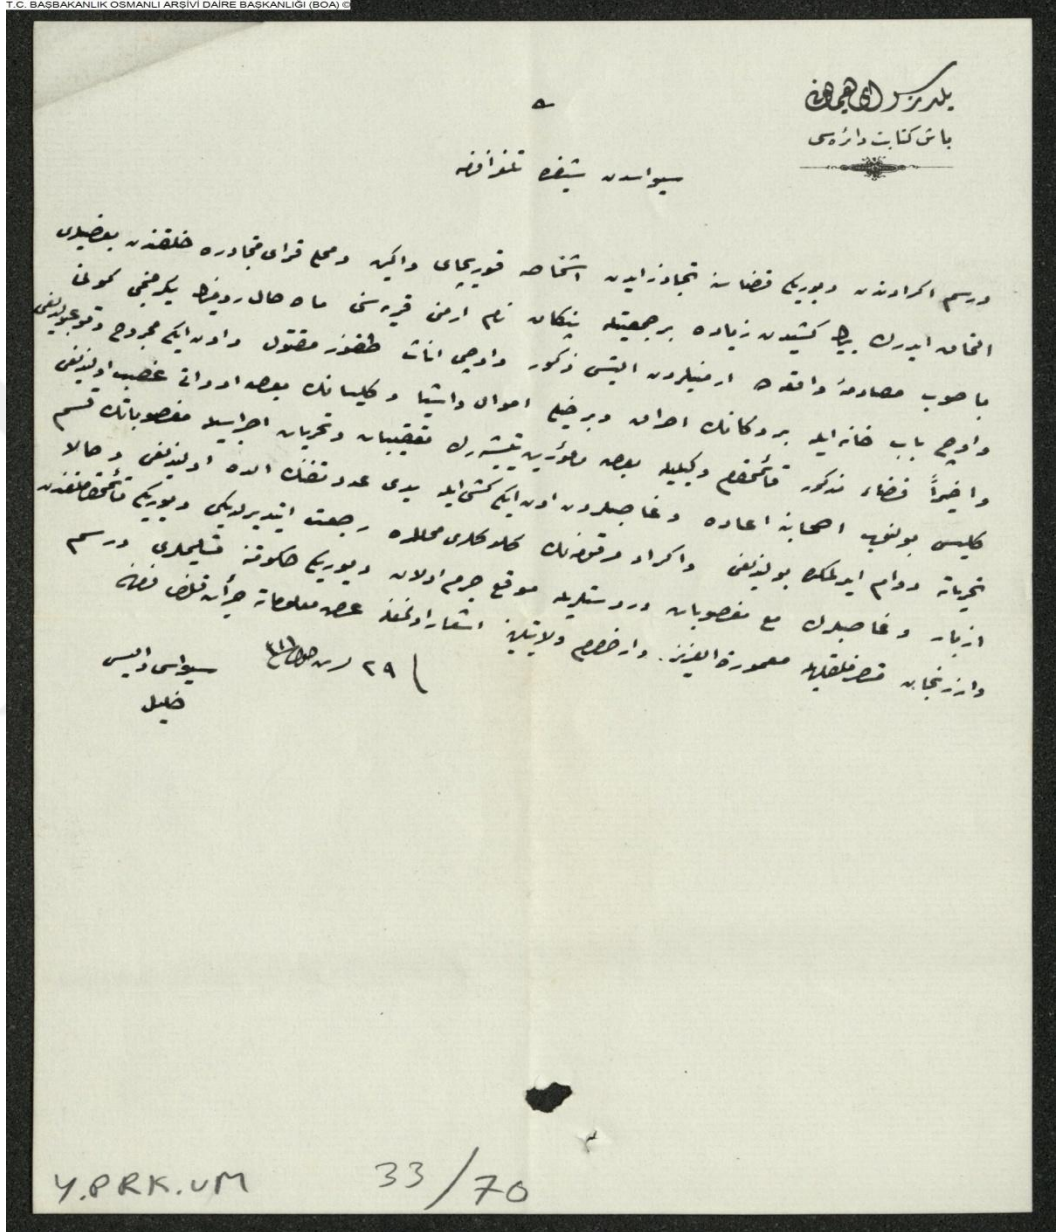 T.C. BAŞBAKANLIK OSMANLI ARŞİVİ DAİRE BAŞKANLIĞI (BOA) ©
یلدیز سرای همایونی
باش کتابت دائره‌سی
سیواسدن شیفره تلغرافنامه
درسم اکرادندن دیوریکی قضاسنه تجاوز ایدن اشخاصه قوریچای واکین ومحلی قرای مجاوره خلقندن بعضیلری
التحاق ایدرك بیڭ کشیدن زیاده بر جمعیتله پنکان نام ارمنی قریه‌سنی ماه حال رومینڭ یکرمنجی کونی
باصوب مصادمهٔ واقعه‌ده ارمنیلردن التیسی ذکور واوچی اناث طقوز مقتول واون ایکی مجروح وقوعبولدیغی
واوچ باب خانه ایله بر دکانك احراق وبر خیلی اموال واشیا وکلیسانك بعض ادواتی غصب اولندیغی
واخیراً قضاء مذکور قائمقام وکیلیله بعض مأمورین یتیشه‌رك تعقیبات وتحریات اجراسیله مغصوباتك قسم
کلیسی بولنوب اصحابنه اعاده وغاصبلردن اون ایکی کشی ایله یدی عدد تفنك الده اولندیغی وحالا
تحریاته دوام ایدلمکده بولندیغی واکراد مرقومه‌نك کلدکلری محللره رجعت ایتدیرلدیکی دیوریکی قائمقاملغندن
ازبار وغاصبلرك مع مغصوبات دردستلریله موقع جرم اولان دیوریکی حکومتنه تسلیملری درسم
وارزنجان متصرفلقلریله معمورة العزیز وارضروم ولایتلرینه اشعار اولنمغله عرض معلوماته جرأت قلندی فرمان
٢٩ تشرین اول ٣١١
سیواس والیسی
خلیل
Y.PRK.UM 33/70